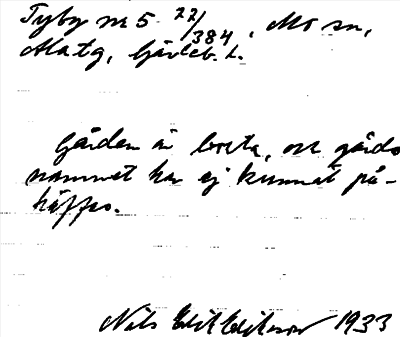 Tyby nr 5 22/384, Mo sn,
Ala tg, Gävleb. l.
Gården är borta, och gårds
namnet har ej kunnat på-
träffas.
Nils Erik Eriksson 1933